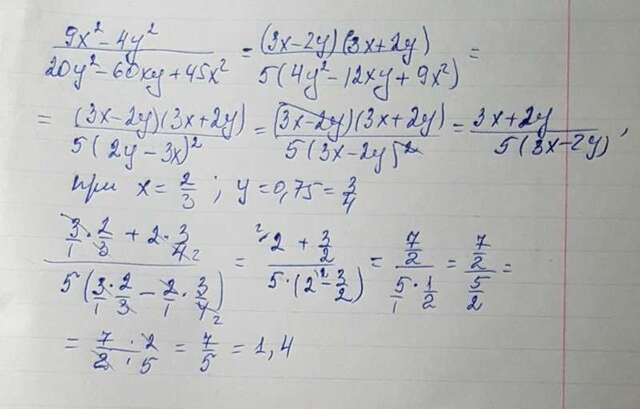 (9x² - 4y²)/(20y² - 60xy + 45x²) = ((3x-2y)(3x+2y))/(5(4y² - 12xy + 9x²)) =
= ((3x-2y)(3x+2y))/(5(2y-3x)²) = ((3x-2y)(3x+2y))/(5(3x-2y)²) = (3x+2y)/(5(3x-2y)),
при x = 2/3 ; y = 0,75 = 3/4
(3/1 · 2/3 + 2 · 3/4 2)/(5(3/1 · 2/3 - 2/1 · 3/4 2)) = (²2 + 3/2)/(5·(2² - 3/2)) = (7/2)/(5/1 · 1/2) = (7/2)/(5/2) =
= (7 · 2)/(2 · 5) = 7/5 = 1,4